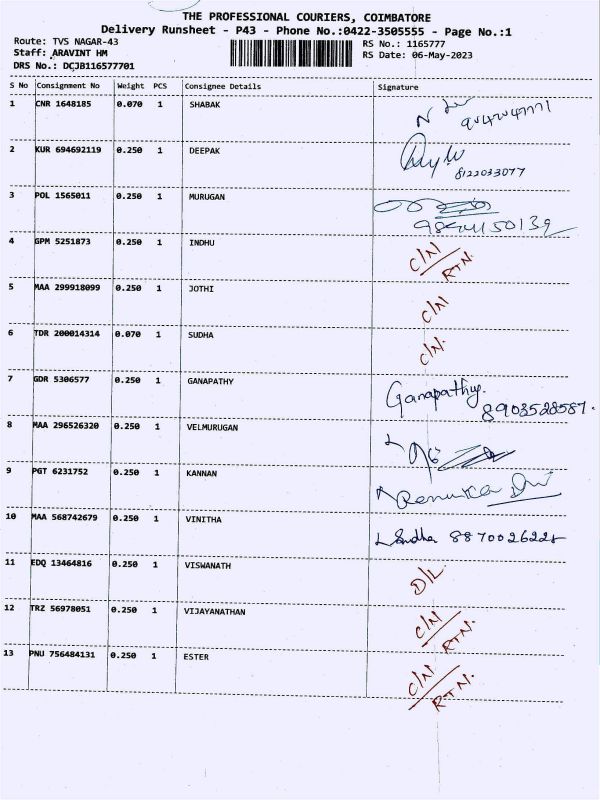 THE PROFESSIONAL COURIERS, COIMBATORE
Delivery Runsheet - P43 - Phone No.:0422-3505555 - Page No.:1
Route: TVS NAGAR-43 RS No.: 1165777
Staff: ARAVINT HM RS Date: 06-May-2023
DRS No.: DCJB116577701
S No Consignment No Weight PCS Consignee Details Signature
1 CNR 1648185 0.070 1 SHABAK
2 KUR 694692119 0.250 1 DEEPAK
8122033077
3 POL 1565011 0.250 1 MURUGAN
4 GPM 5251873 0.250 1 INDHU C/N/
RTN.
5 MAA 299918099 0.250 1 JOTHI C/N
6 TDR 200014314 0.070 1 SUDHA C/N.
7 GDR 5306577 0.250 1 GANAPATHY Ganapathy.
8903528587.
8 MAA 296526320 0.250 1 VELMURUGAN
9 PGT 6231752 0.250 1 KANNAN Renuka
10 MAA 568742679 0.250 1 VINITHA Sudha 8870026225
11 EDQ 13464816 0.250 1 VISWANATH D/L
12 TRZ 56978051 0.250 1 VIJAYANATHAN C/N/
RTN.
13 PNU 756484131 0.250 1 ESTER C/N/
RTN.